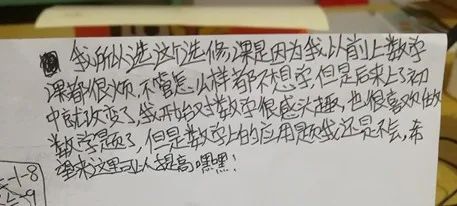 我所以选这个选修课是因为我以前上数学
课都很烦,不管怎么样都不想学,但是后来上了初
中就改变了,我开始对数学很感头趣,也很喜欢做
数学题了,但是数学上的应用题我还是不会,希
望来这里可以提高嘿嘿!
-1-8